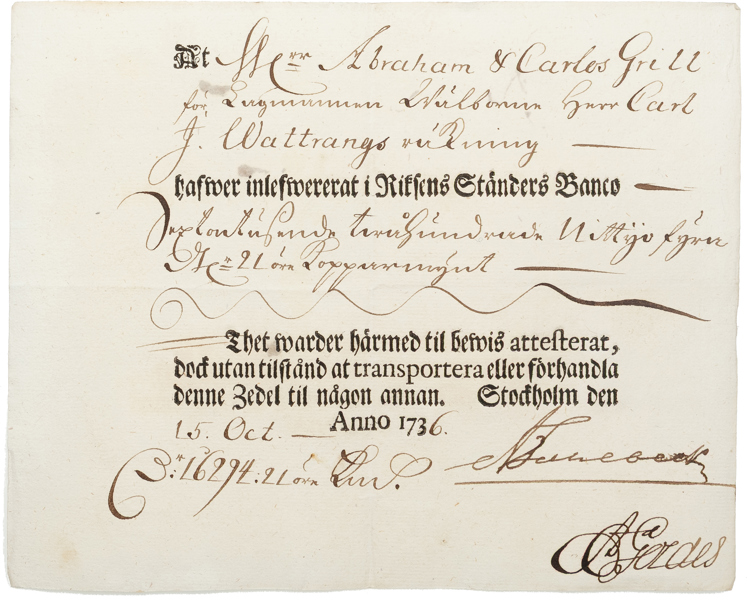 At Hrr Abraham & Carlos Grill
för Lagmannen Wälborne Herr Carl
J. Wattrangs räkning
hafwer inlefwererat i Riksens Ständers Banco
Sextontusende twåhundrade Nittijo fyra
Dlr 21 öre Kopparmÿnt
Thet warder härmed til bewis attesterat,
dock utan tilstånd at transportera eller förhandla
denne Zedel til någon annan. Stockholm den
15. Oct. Anno 1736.
Dr: 16294: 21 öre Kmt.
Gerdes